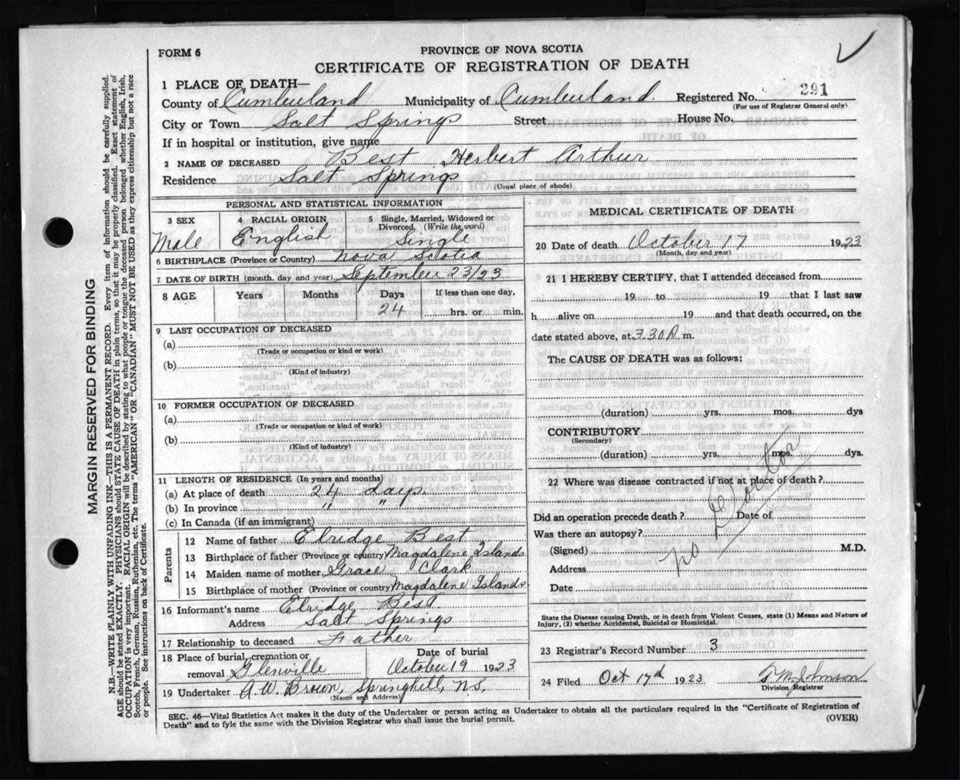 FORM 6
PROVINCE OF NOVA SCOTIA
CERTIFICATE OF REGISTRATION OF DEATH
MARGIN RESERVED FOR BINDING
N.B.—WRITE PLAINLY WITH UNFADING INK—THIS IS A PERMANENT RECORD. Every item of information should be carefully supplied.
AGE should be stated EXACTLY. PHYSICIANS should STATE CAUSE OF DEATH in plain terms, so that it may be properly classified. Exact statement of
OCCUPATION is very important. RACIAL ORIGIN will be described by stating to what people or tongue the deceased person belonged whether English, Irish,
Scotch, French, German, Russian, Ruthenian, etc. The terms "AMERICAN" OR "CANADIAN" MUST NOT BE USED as they express citizenship but not a race
or people. See instructions on back of Certificate.
1 PLACE OF DEATH—
County of Cumberland Municipality of Cumberland. Registered No. 291
(For use of Registrar General only)
City or Town Salt Springs Street House No.
If in hospital or institution, give name
2 NAME OF DECEASED Best Herbert Arthur
Residence Salt Springs
(Usual place of abode)
PERSONAL AND STATISTICAL INFORMATION
3 SEX Male
4 RACIAL ORIGIN English
5 Single, Married, Widowed or Divorced (Write the word) Single
6 BIRTHPLACE (Province or Country) Nova Scotia
7 DATE OF BIRTH (month, day and year) September 23/23
8 AGE Years Months Days 24 If less than one day, hrs. or min.
9 LAST OCCUPATION OF DECEASED
(a)
(Trade or occupation or kind or work)
(b)
(Kind of industry)
10 FORMER OCCUPATION OF DECEASED
(a)
(Trade or occupation or kind of work)
(b)
(Kind of industry)
11 LENGTH OF RESIDENCE (In years and months)
(a) At place of death 24 days.
(b) In province " "
(c) In Canada (if an immigrant)
Parents
12 Name of father Elridge Best
13 Birthplace of father (Province or country) Magdalene Islands
14 Maiden name of mother Grace Clark
15 Birthplace of mother (Province or country) Magdalene Islands.
16 Informant's name Elridge Best
Address Salt Springs
17 Relationship to deceased Father
18 Place of burial, cremation or removal Glenville
Date of burial October 19 1923
19 Undertaker A.W. Brown, Springhill, N.S.
(Name and Address)
MEDICAL CERTIFICATE OF DEATH
20 Date of death October 17 1923
(Month, day and year)
21 I HEREBY CERTIFY, that I attended deceased from
19 to 19 that I last saw
h alive on 19 and that death occurred, on the
date stated above, at 3.30 A. m.
The CAUSE OF DEATH was as follows:
(duration) yrs. mos. dys
CONTRIBUTORY
(Secondary)
(duration) yrs. mos. dys.
22 Where was disease contracted if not at place of death?
Did an operation precede death? Date of
Was there an autopsy?
no Doctor
(Signed) M.D.
Address
Date
State the Disease causing Death, or in death from Violent Causes, state (1) Means and Nature of
Injury, (2) whether Accidental, Suicidal or Homicidal.
23 Registrar's Record Number 3
24 Filed Oct 17th 1923 Johnson
Division Registrar
SEC. 46—Vital Statistics Act makes it the duty of the Undertaker or person acting as Undertaker to obtain all the particulars required in the "Certificate of Registration of
Death" and to fyle the same with the Division Registrar who shall issue the burial permit.
(OVER)